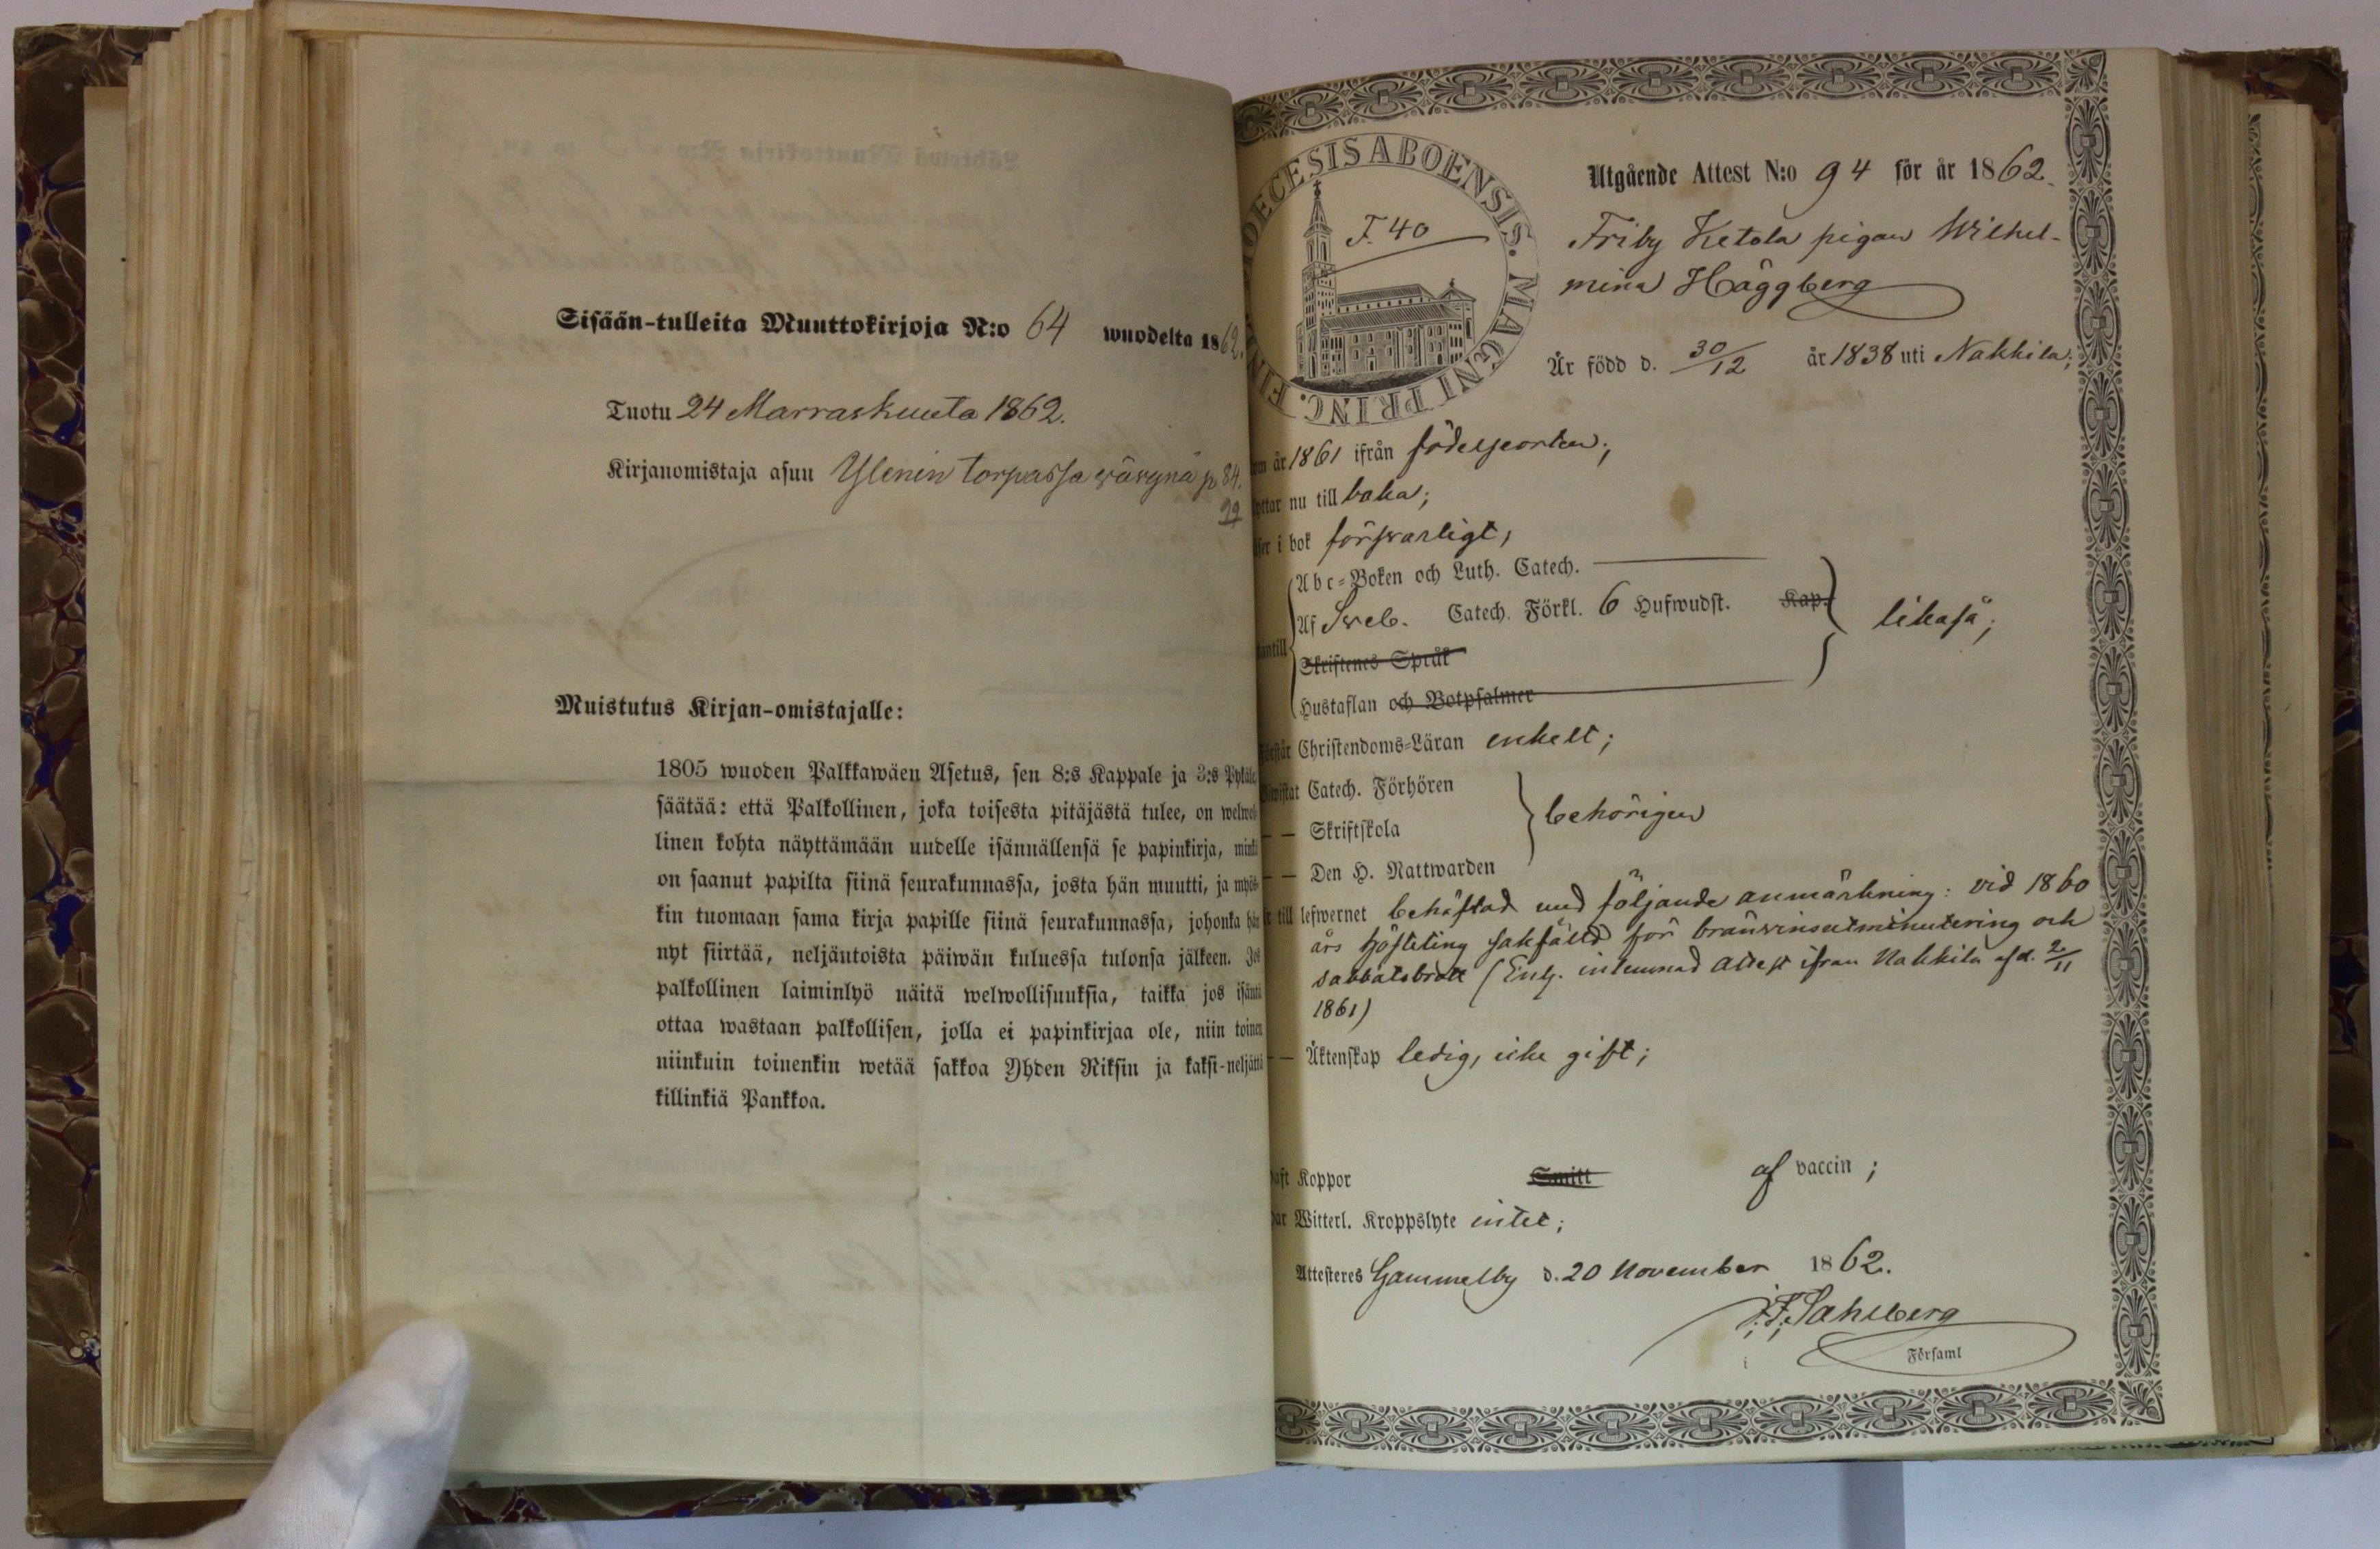 Sisään-tulleita Muuttokirjoja N:o 64 wuodelta 1862.
Tuotu 24 Marraskuuta 1862.
Kirjanomistaja asuu Ylenin torpassa p 84.
99
Muistutus Kirjan-omistajalle:
1805 wuoden Palkkawäen Asetus, sen 8:s Kappale ja 3:s Pykälä
säätää: että Palkollinen, joka toisesta pitäjästä tulee, on welwol-
linen kohta näyttämään uudelle isännällensä se papinkirja, minkä
on saanut papilta siinä seurakunnassa, josta hän muutti, ja myös-
kin tuomaan sama kirja papille siinä seurakunnassa, johonka hän
nyt siirtää, neljäntoista päiwän kuluessa tulonsa jälkeen. Jos
palkollinen laiminlyö näitä welwollisuuksia, taikka jos isäntä
ottaa wastaan palkollisen, jolla ei papinkirjaa ole, niin toinen
niinkuin toinenkin wetää sakkoa Yhden Riksin ja kaksi-neljättä
killinkiä Pankkoa.
DIOECESIS ABOENSIS. MAGNI PRINC. FIN
F. 40
Utgående Attest N:o 94 för år 1862.
Friby Ketola pigan Wilhel-
mina Häggberg
Är född d. 30/12 år 1838 uti Nakkila;
om år 1861 ifrån födelseorten;
yttar nu till baka;
äser i bok försvarligt;
Abc-Boken och Luth. Catech.
Af Sveb. Catech. Förkl. 6 Hufwudst. Kap. likaså;
antill
Skriftenes Språk
Hustaflan och Botpsalmer
Förstår Christendoms-Läran enkelt;
Bewistat Catech. Förhören
— — Skriftskola behörigen
— — Den H. Nattwarden
är till lefwernet behäftad med följande anmärkning: vid 1860
års hösteting sakfälld för bränvinsutminutering och
sabbatsbrott (Enl. inlemnad attest ifrån Nakkila af d. 2/11
1861)
— — Äktenskap ledig, icke gift;
haft Koppor Smitt af vaccin;
har Witterl. Kroppslyte intet;
Attesteres Gammelby d. 20 November 1862.
J. F. Sahlberg
i Församl